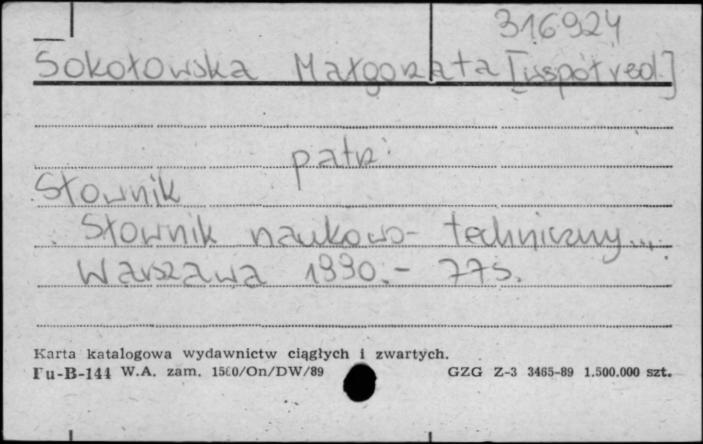 316924
Sokołowska Małgorzata [współred.]
patrz:
Słownik
Słownik naukowo-techniczny...
Warszawa 1990.- 77s.
Karta katalogowa wydawnictw ciągłych i zwartych.
Pu-B-144 W.A. zam. 1560/On/DW/89 GZG Z-3 3465-89 1.500.000 szt.